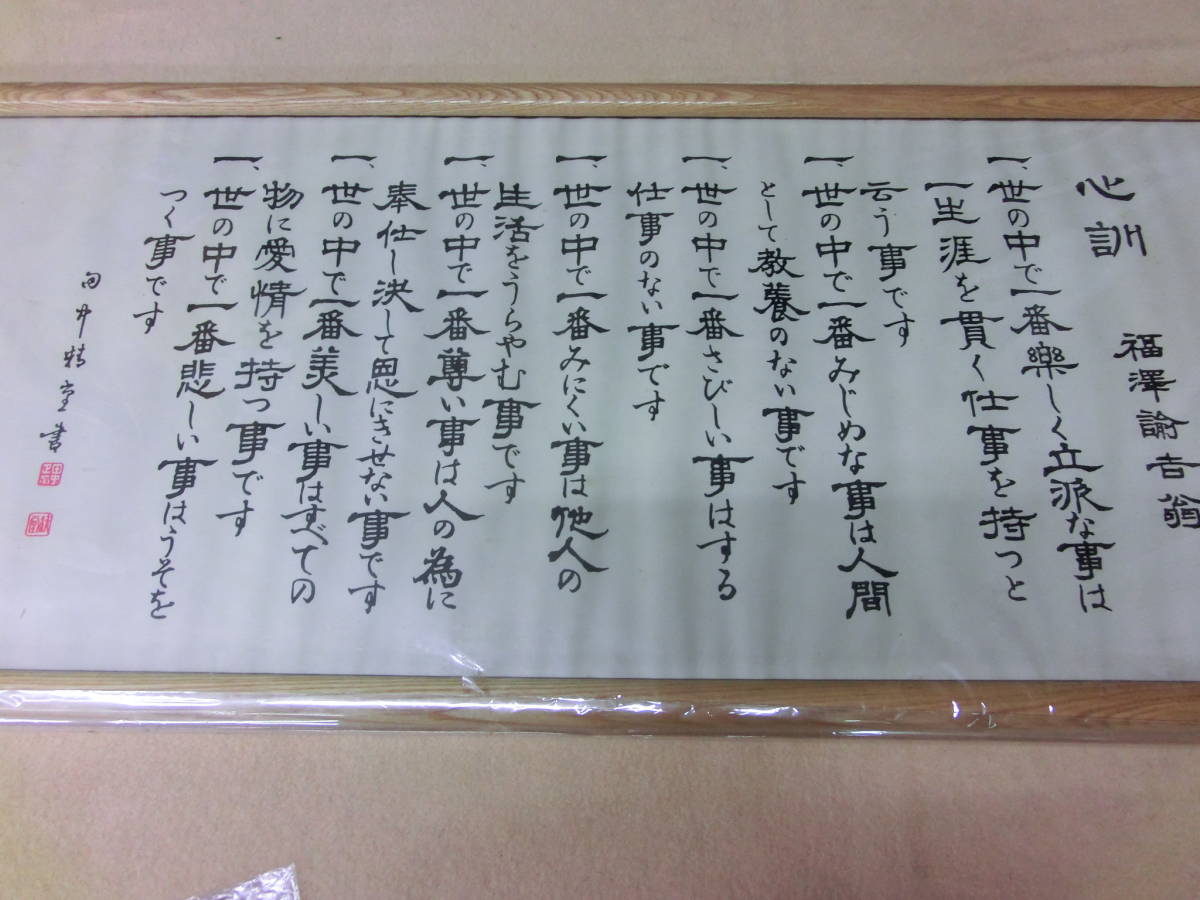 心訓
福澤諭吉翁
一、世の中で一番樂しく立派な事は
一生涯を貫く仕事を持つと
云う事です
一、世の中で一番みじめな事は人間
として教養のない事です
一、世の中で一番さびしい事はする
仕事のない事です
一、世の中で一番みにくい事は他人の
生活をうらやむ事です
一、世の中で一番尊い事は人の為に
奉仕し決して恩にきせない事です
一、世の中で一番美しい事はすべての
物に愛情を持つ事です
一、世の中で一番悲しい事はうそを
つく事です
書